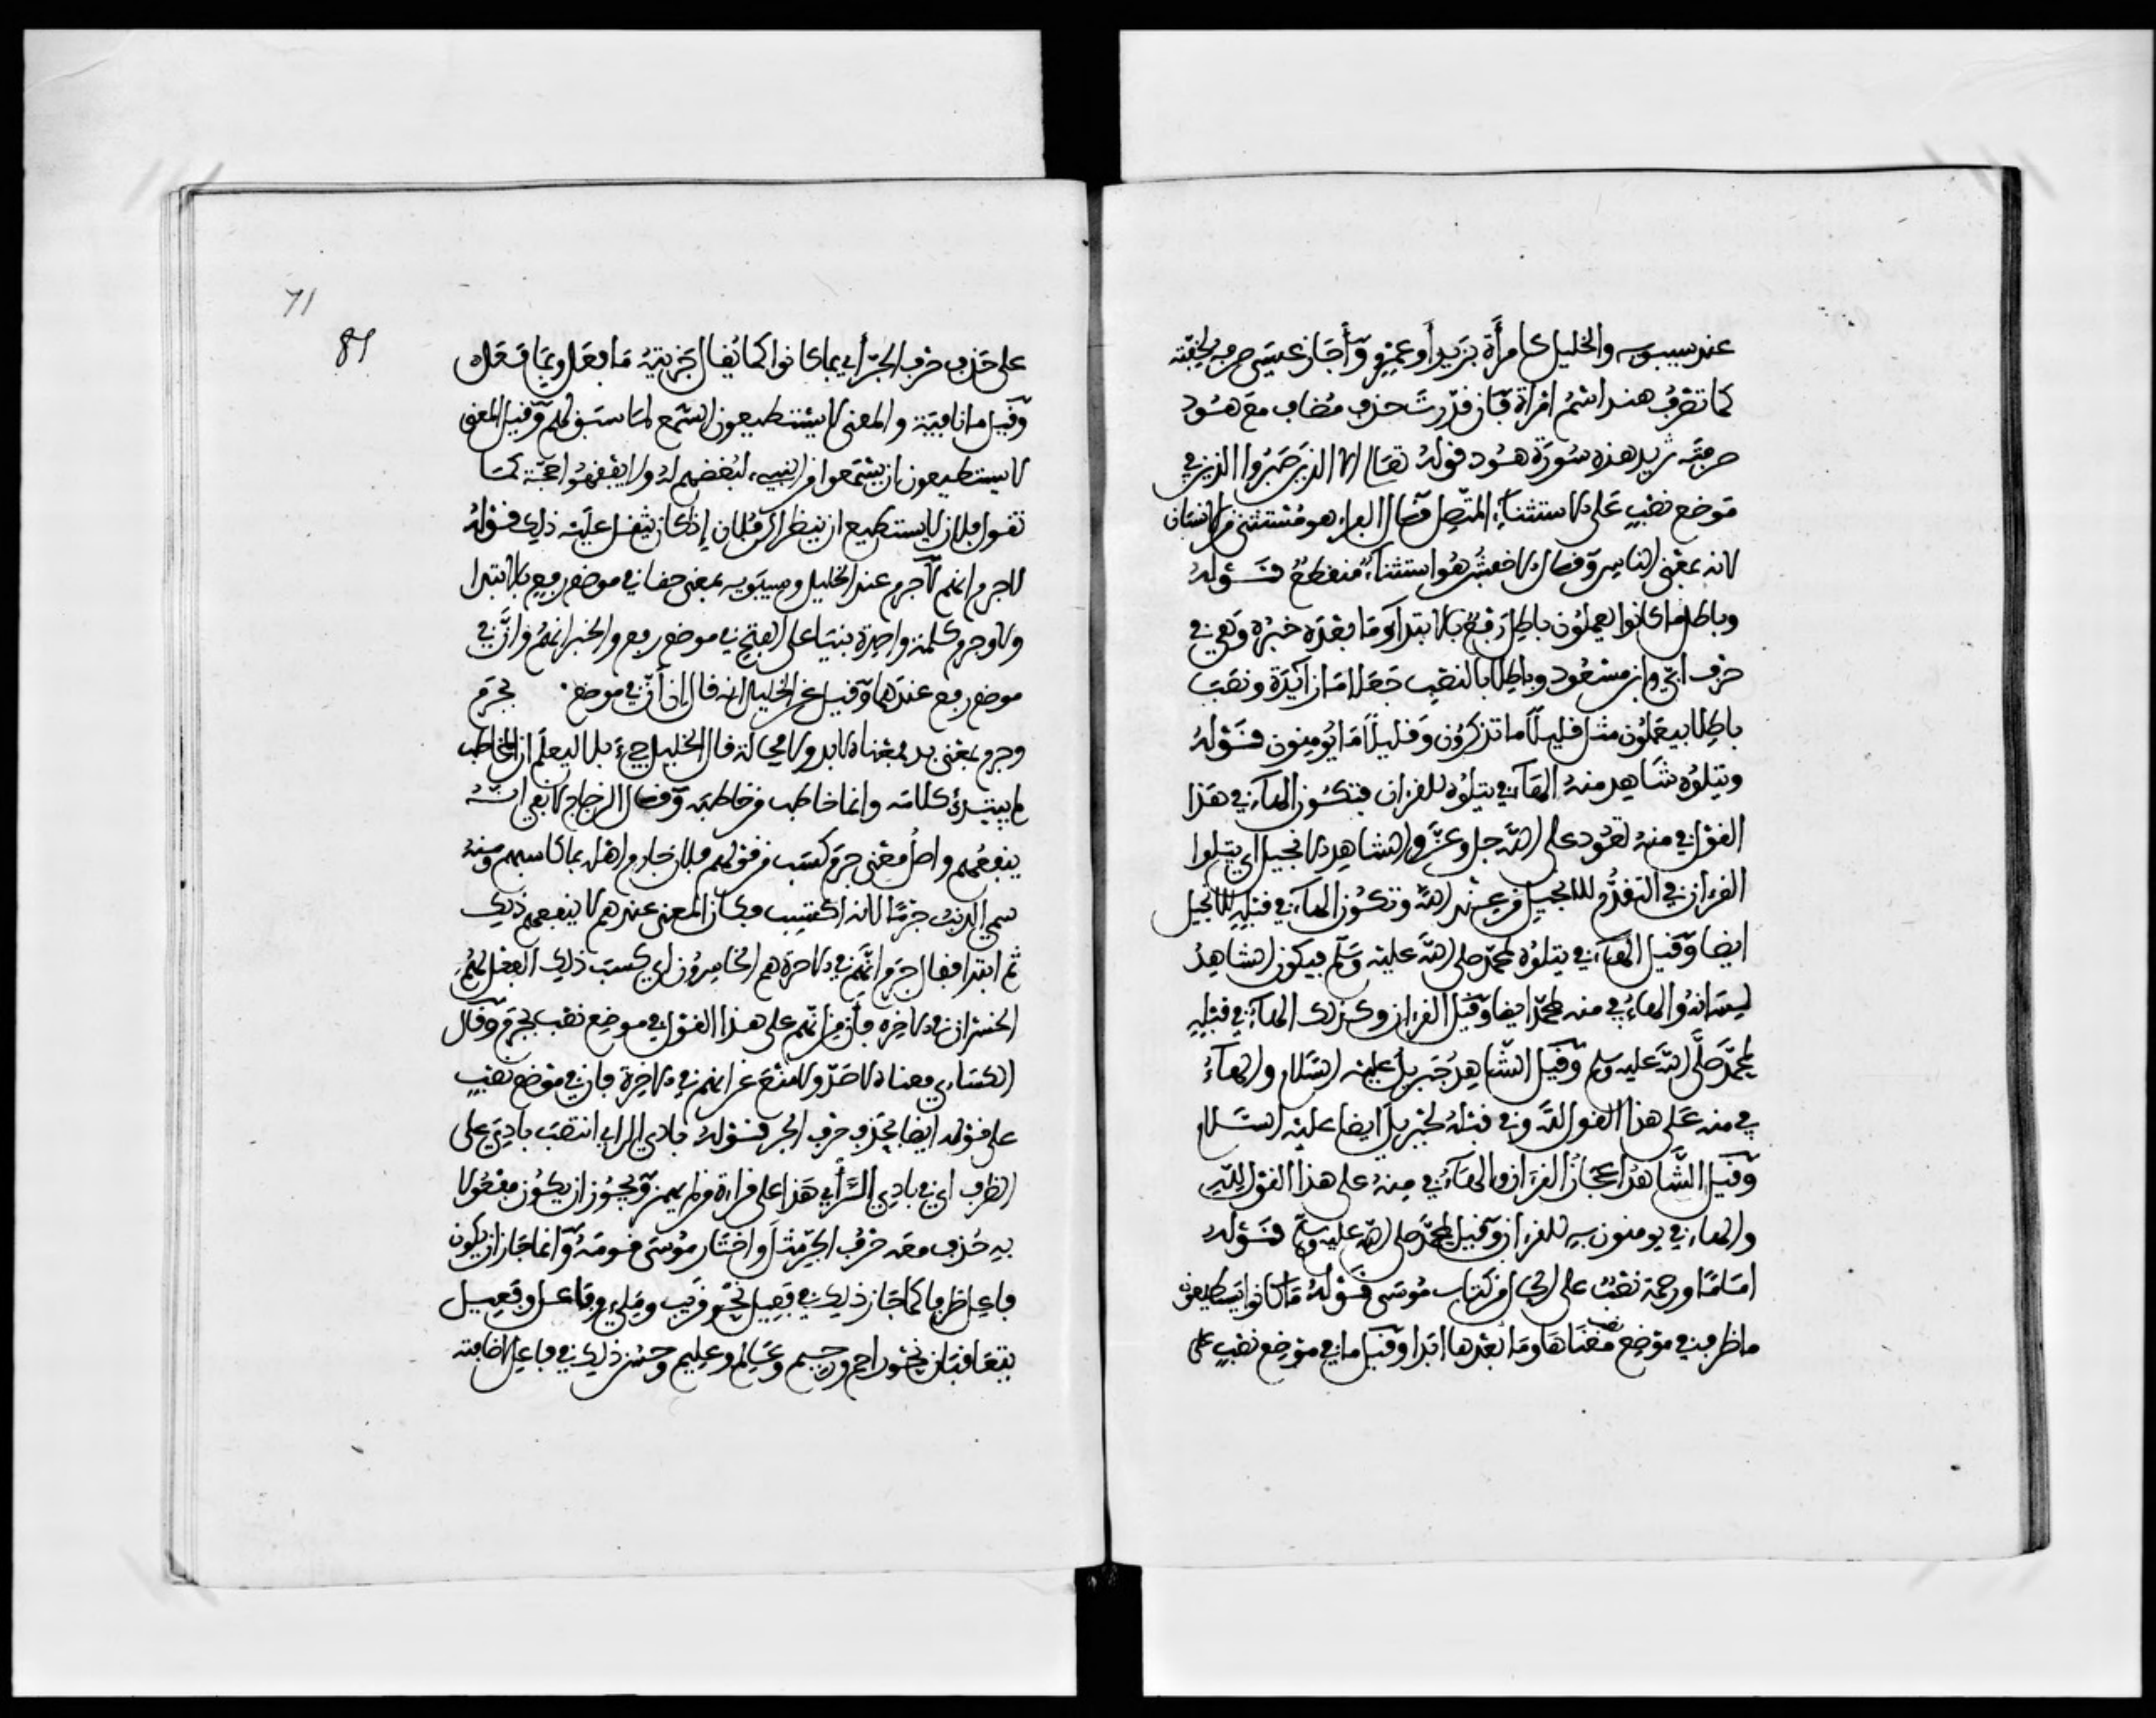 عند سيبويه والخليل كامرأة بزيد أو عمرو وأجاز عيسى صرفه لخفته
كما تصرف هند اسم امرأة فان قدرت حذف مضاف مع هود
صرفته تريد هذه سورة هود قوله تعالى الا الذين صبروا الذين في
موضع نصب على الاستثناء المتصل قال الفراء هو مستثنى من الانسان
لانه بمعنى الناس وقال الاخفش هو استثناء منقطع قوله
وباطل ما كانوا يعملون باطل رفع بالابتدا وما بعده خبره وهي في
حرف ابي وابن مسعود وباطلا بالنصب جعلا ما زائدة ونصب
باطلا بيعملون مثل قليلا ما تذكرون وقليلا ما يومنون قوله
ويتلوه شاهد منه الهاء في يتلوه للقران فتكون الهاء في هذا
القول في منه تعود على الله جل وعز والشاهد الانجيل اي يتلوا
القران في التقدم للانجيل من عند الله وتكون الهاء في قبله للانجيل
ايضا وقيل الهاء في يتلوه لمحمد صلى الله عليه وسلم فيكون الشاهد
لسانه والهاء في منه لمحمد ايضا وقيل القران وكذلك الهاء في قبله
لمحمد صلى الله عليه وسلم وقيل الشاهد جبريل عليه السلام والهاء
في منه على هذا القول لله وفي قبله لجبريل ايضا عليه السلام
وقيل الشاهد اعجاز القران والهاء في منه على هذا القول لله
والهاء في يومنون به للقران وقيل لمحمد صلى الله عليه وسلم قوله
اماما ورحمة نصب على الحال من كتاب موسى قوله ما كانوا يستطيعون
ما ظرف في موضع نصب معناها وما بعدها ابدا وقيل ما في موضع نصب على
71
89
على حذف حرف الجر أي بما كانوا كما يقال جزيته ما فعل وبما فعل
وقيل ما نافية والمعنى لا يستطيعون السمع لما سبق لهم وقيل المعنى
لا يستطيعون ان يستمعوا من النبي لبغضهم له ولا يفقهوا حجة كما
تقول فلان لا يستطيع ان ينظر الى فلان إذا كان يثقل عليه ذلك قوله
لا جرم انهم لا جرم عند الخليل وسيبويه بمعنى حقا في موضع رفع بالابتدا
ولا وجرم كلمة واحدة بنيا على الفتح في موضع رفع والخبر انهم فأن في
موضع رفع عندهما وقيل عن الخليل انه قال ان أن في موضع بجرم
وجرم بمعنى بد فمعناه لا بد ولا محالة قال الخليل جيء بلا ليعلم ان المخاطب
لم يبتدئ كلامه وانما خاطب من خاطبه وقال الزجاج لا نفي انه
ينفعهم واصل معنى جرم كسب من قولهم فلان جارم اهله بما كاسبهم ومنه
سمي الذنب جرما لانه اكتسب فكأن المعنى عندهم لا ينفعهم ذلك
ثم ابتدا فقال جرم انهم في الاخرة هم الخاسرون اي كسب ذلك الفعل لهم
الخسران في الاخرة فأن من انهم على هذا القول في موضع نصب بجرم وقال
الكسائي معناه لا صد ولا منع عن انهم في الاخرة فان في موضع نصب
على قوله ايضا بحذف حرف الجر قوله بادي الراي انتصب بادي على
الظرف اي في بادي الرأي هذا على قراءة من لم يهمز ويجوز ان يكون مفعولا
به حذف معه حرف الجر مثل واختار موسى قومه وانما جاز ان يكون
فاعل ظرفا كما جاز ذلك في فعيل نحو قريب وملي وفاعل وفعيل
يتعاقبان نحو راحم ورحيم وعالم وعليم وحسن ذلك في فاعل لاضافته